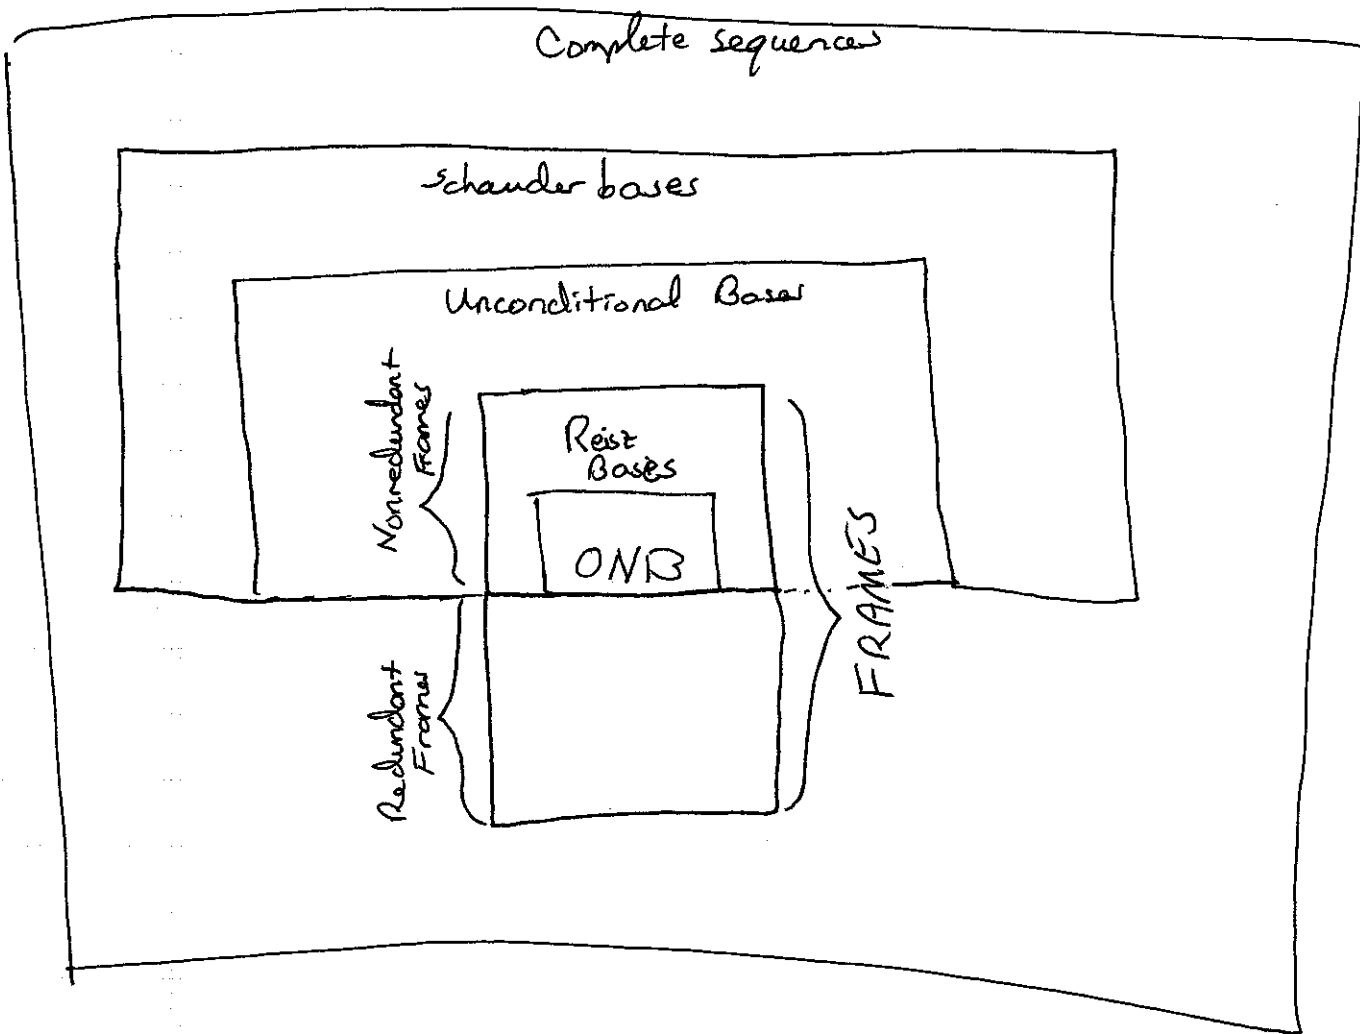 Complete sequences
Schauder bases
Unconditional Bases
Nonredundant
Frames
Reisz
Bases
ONB
FRAMES
Redundant
Frames